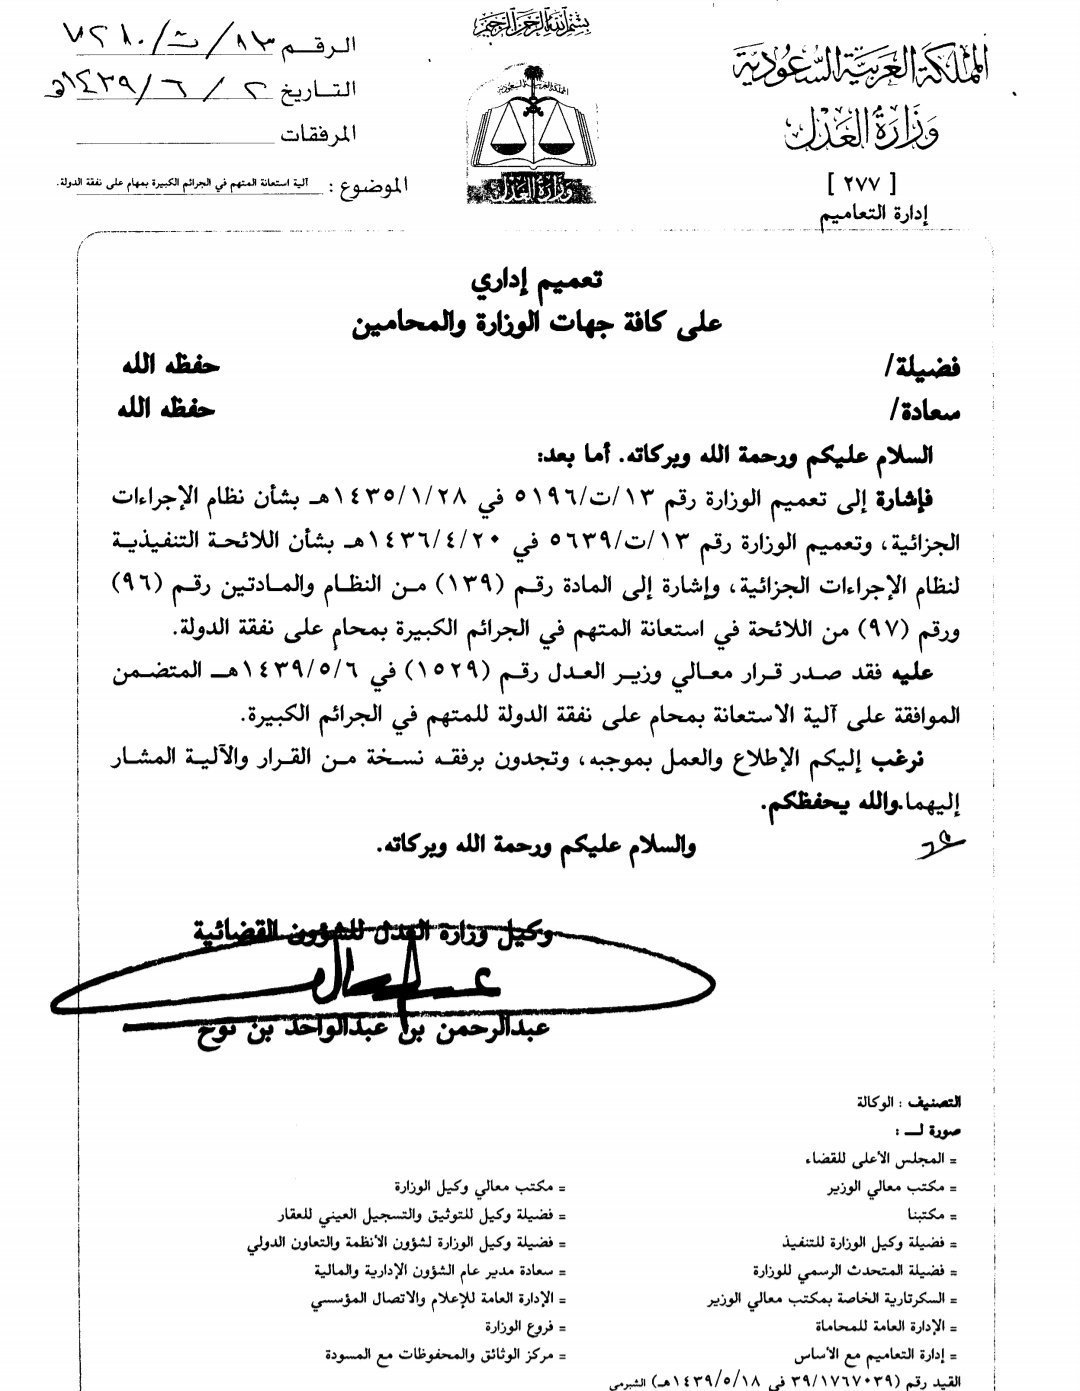 بسم الله الرحمن الرحيم
المملكة العربية السعودية
وزارة العدل
[ ٢٧٧ ]
إدارة التعاميم
المملكة العربية السعودية
وزارة العدل
الرقم ١٣/ت/
التاريخ ٢ / ٦ / ١٤٣٩هـ
المرفقات
الموضوع : آلية استعانة المتهم في الجرائم الكبيرة بمهام على نفقة الدولة.
تعميم إداري
على كافة جهات الوزارة والمحامين
فضيلة/ حفظه الله
سعادة/ حفظه الله
السلام عليكم ورحمة الله وبركاته. أما بعد:
فإشارة إلى تعميم الوزارة رقم ١٣/ت/٥١٩٦ في ١٤٣٥/١/٢٨هـ بشأن نظام الإجراءات
الجزائية، وتعميم الوزارة رقم ١٣/ت/٥٦٣٩ في ١٤٣٦/٤/٢٠هـ بشأن اللائحة التنفيذية
لنظام الإجراءات الجزائية، وإشارة إلى المادة رقم (١٣٩) من النظام والمادتين رقم (٩٦)
ورقم (٩٧) من اللائحة في استعانة المتهم في الجرائم الكبيرة بمحام على نفقة الدولة.
عليه فقد صدر قرار معالي وزير العدل رقم (١٥٢٩) في ١٤٣٩/٥/٦هـ المتضمن
الموافقة على آلية الاستعانة بمحام على نفقة الدولة للمتهم في الجرائم الكبيرة.
نرغب إليكم الإطلاع والعمل بموجبه، وتجدون برفقه نسخة من القرار والآلية المشار
إليهما.والله يحفظكم.
والسلام عليكم ورحمة الله وبركاته.
وكيل وزارة العدل للشؤون القضائية
عبدالرحمن بن عبدالواحد بن نوح
التصنيف : الوكالة
صورة لـ :
= المجلس الأعلى للقضاء
= مكتب معالي الوزير = مكتب معالي وكيل الوزارة
= مكتبنا = فضيلة وكيل للتوثيق والتسجيل العيني للعقار
= فضيلة وكيل الوزارة للتنفيذ = فضيلة وكيل الوزارة لشؤون الأنظمة والتعاون الدولي
= فضيلة المتحدث الرسمي للوزارة = سعادة مدير عام الشؤون الإدارية والمالية
= السكرتارية الخاصة بمكتب معالي الوزير = الإدارة العامة للإعلام والاتصال المؤسسي
= الإدارة العامة للمحاماة = فروع الوزارة
= إدارة التعاميم مع الأساس = مركز الوثائق والمحفوظات مع المسودة
القيد رقم (٣٩/١٧٦٧٠٣٩ في ١٤٣٩/٥/١٨هـ) الشبرمي